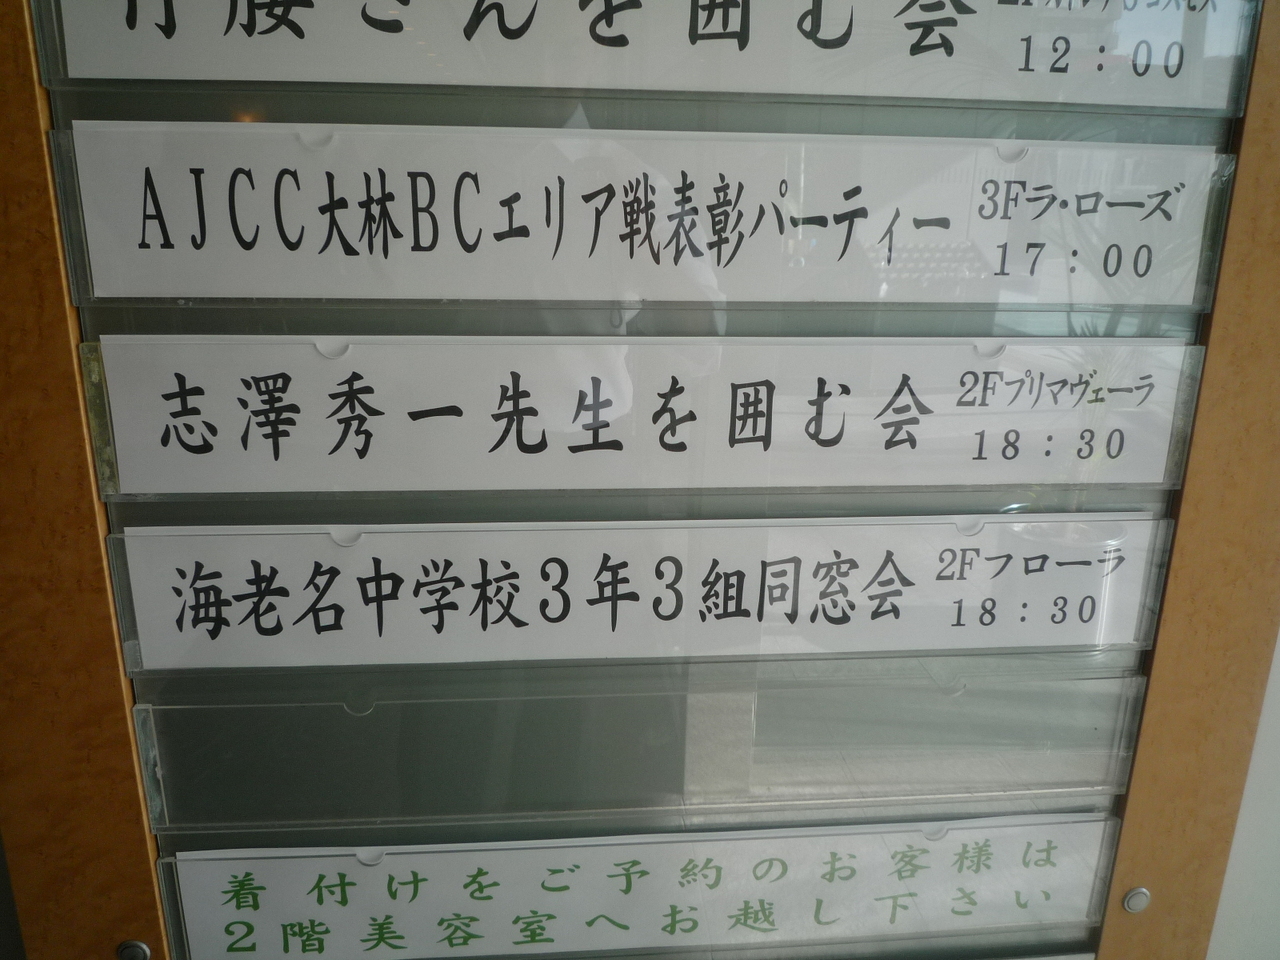 さんを囲む会
12:00
AJCC大林BCエリア戦表彰パーティー
3Fラ・ローズ
17:00
志澤秀一先生を囲む会
2Fプリマヴェーラ
18:30
海老名中学校3年3組同窓会
2Fフローラ
18:30
着付けをご予約のお客様は
2階美容室へお越し下さい